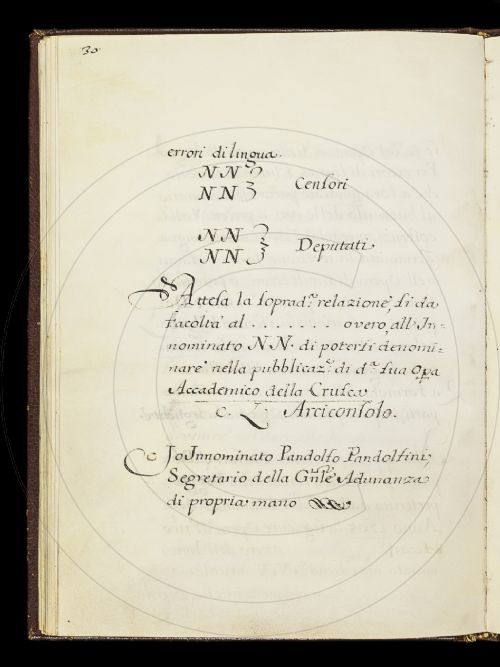 30
errori di lingua.
NN
NN Censori
NN
NN Deputati
Attesa la soprad.ª relazione, si da
facoltà al . . . . . . . overo, all'In=
nominato NN. di potersi denomi=
nare nella pubblicaz.e di d.ª sua Opa
Accademico della Crusca
C. L Arciconsolo.
Io Innominato Pandolfo Pandolfini,
Segretario della Gnle Adunanza
di propria mano